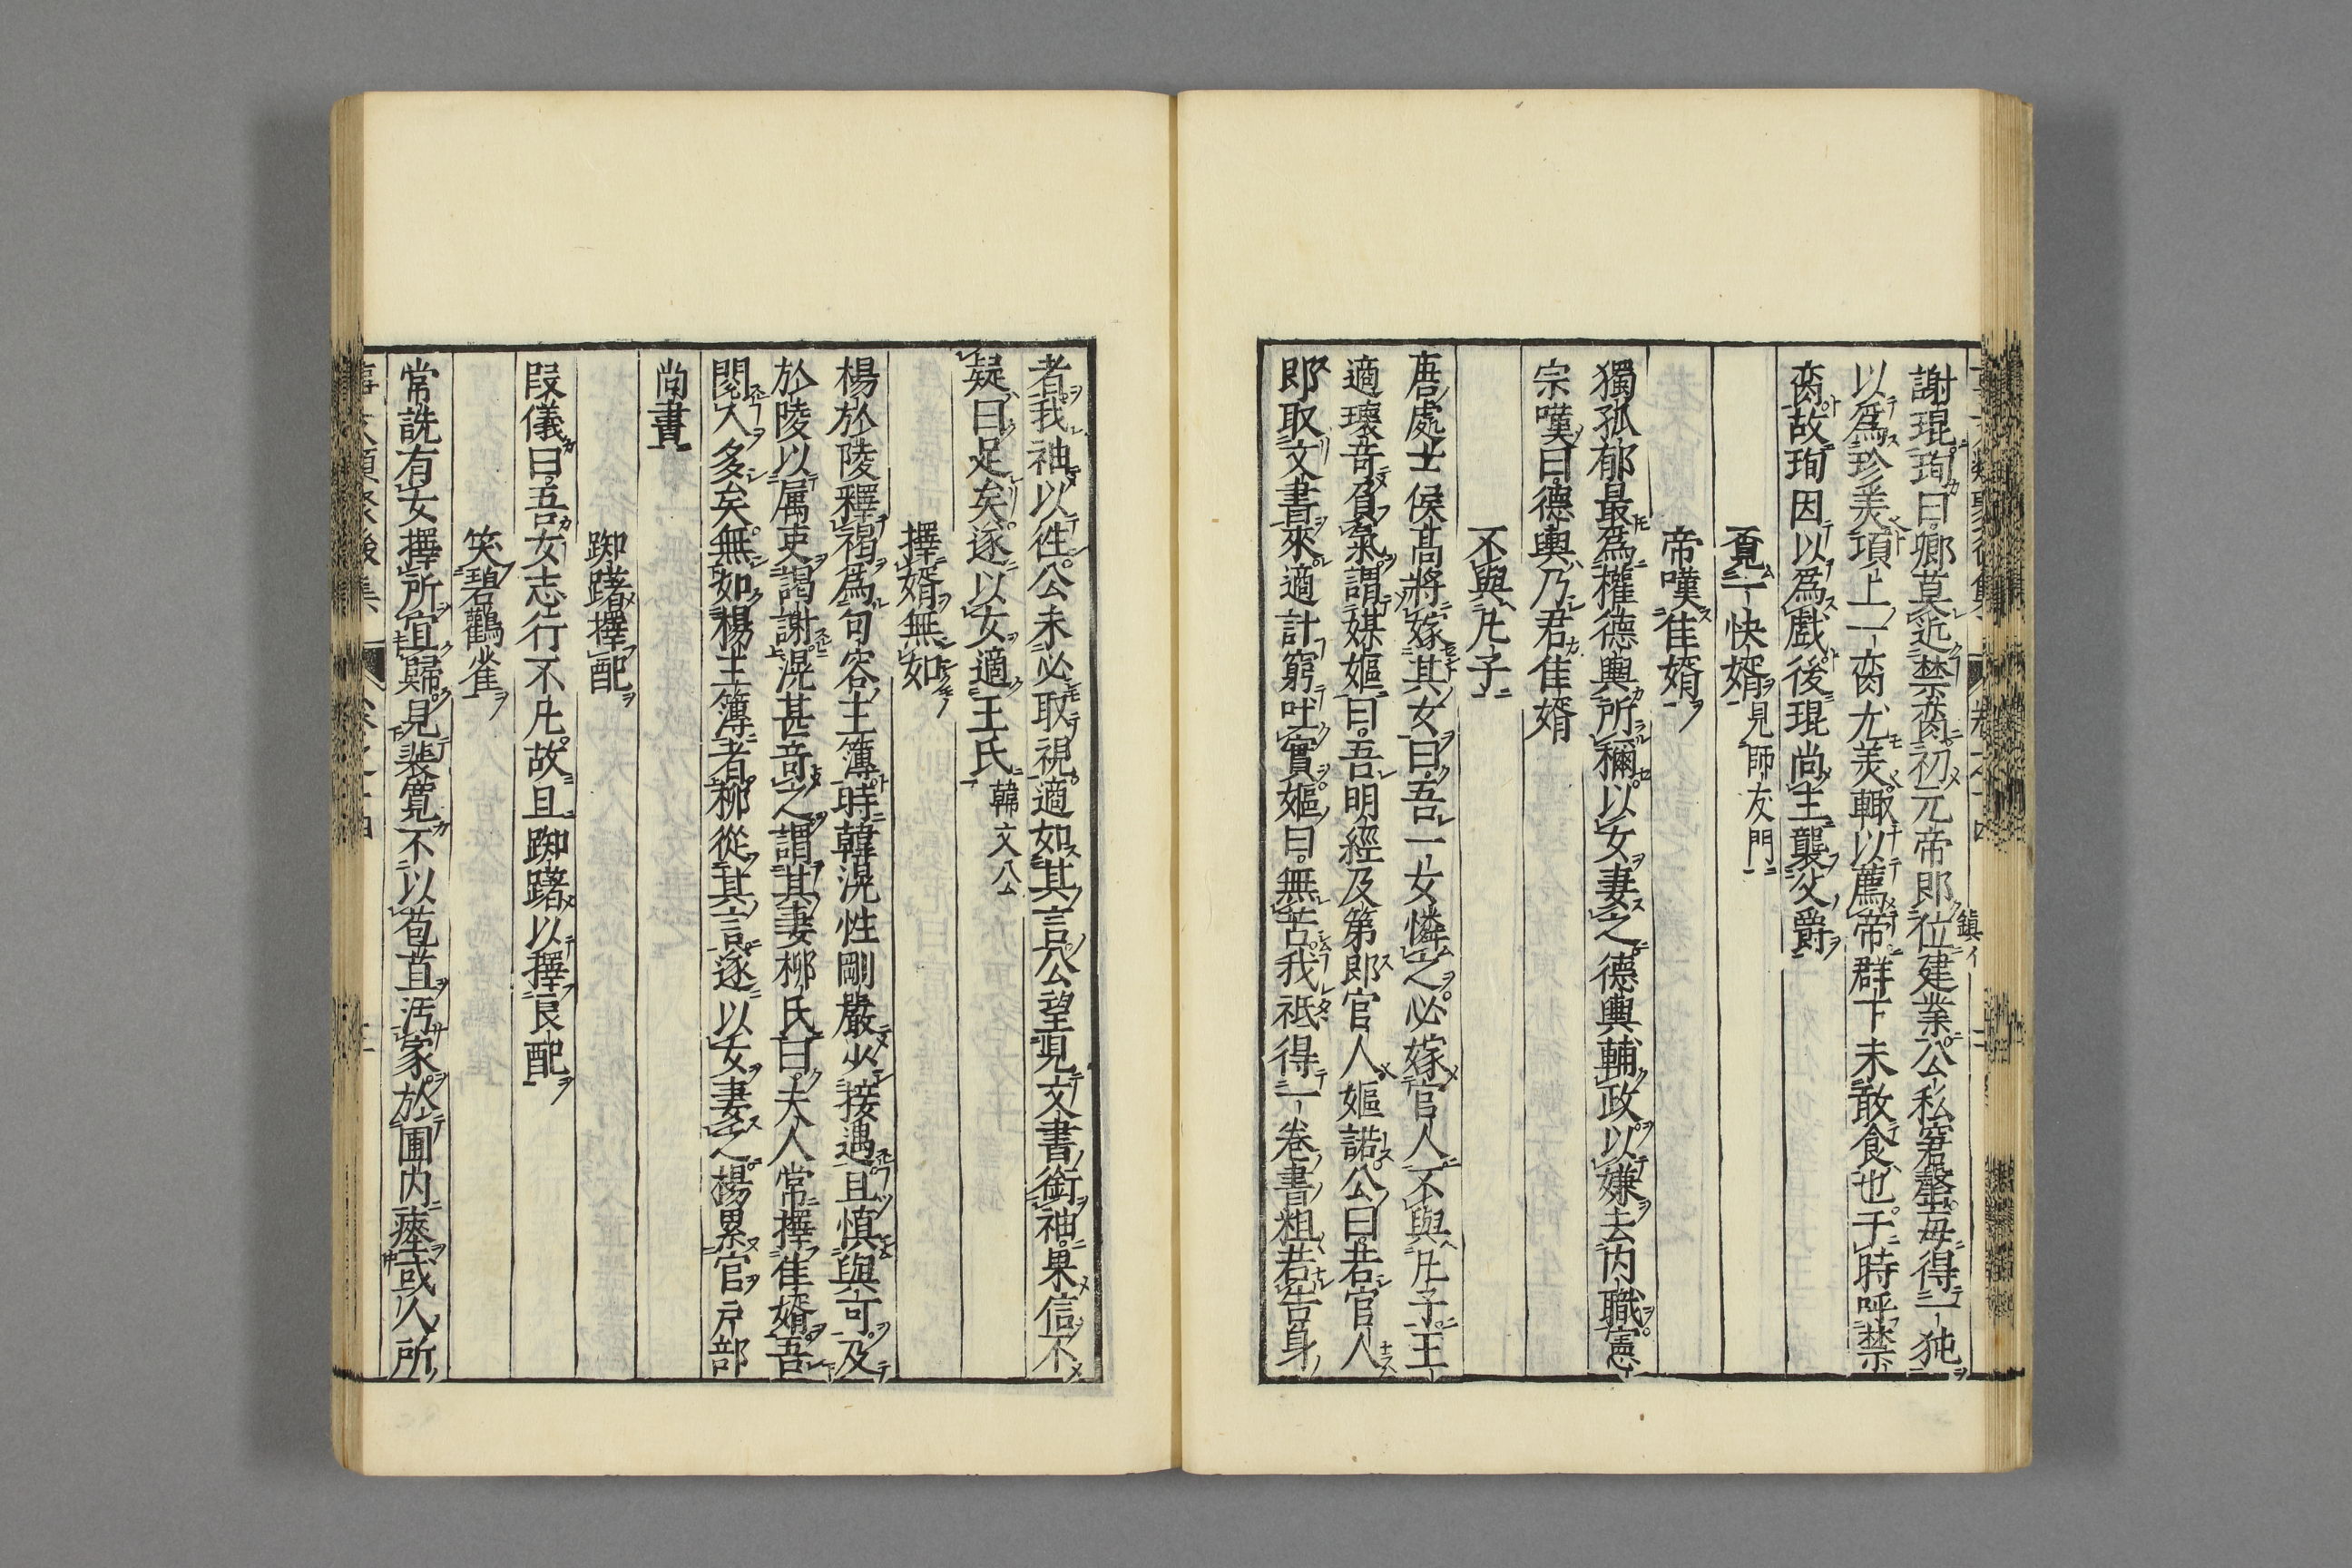 謝琨珣曰卿莫近禁臠初元帝即位建業公私窘罄毎得一㹠
鎮イ
以爲珍美項上一臠尤美輙以薦帝群下未敢食也于時呼禁
臠故珣因以爲戲後琨尚主襲父爵
覔一快婿見師友門
帝嘆佳婿
獨孤郁最爲權德輿所稱以女妻之德輿輔政以嫌去内職憲
宗嘆曰德輿乃君佳婿
不與凡子
唐處士侯髙將嫁其女曰吾一女憐之必嫁官人不與凡子王
適瓌竒負氣謂媒嫗曰吾明經及第即官人嫗諾公曰若官人
即取文書來適計窮吐實嫗曰無苦我祇得一卷書粗若告身
者我袖以徃公未必取視適如其言公望見文書銜袖果信不
疑曰足矣遂以女適王氏韓文八厶
擇婿無如
楊於陵釋褐爲句容主簿時韓滉性剛嚴火接遇且慎與可及
於陵以属吏謁謝滉甚竒之謂其妻柳氏曰夫人常擇佳婿吾
閱人多矣無如楊主簿者柳從其言遂以女妻之楊累官戸部
尚書
踟躇擇配
叚儀曰吾女志行不凡故且踟躇以擇良配
笑碧鸛雀
常詵有女擇所宜歸見裴寬不以苞苴汚家於圃内瘞或人所